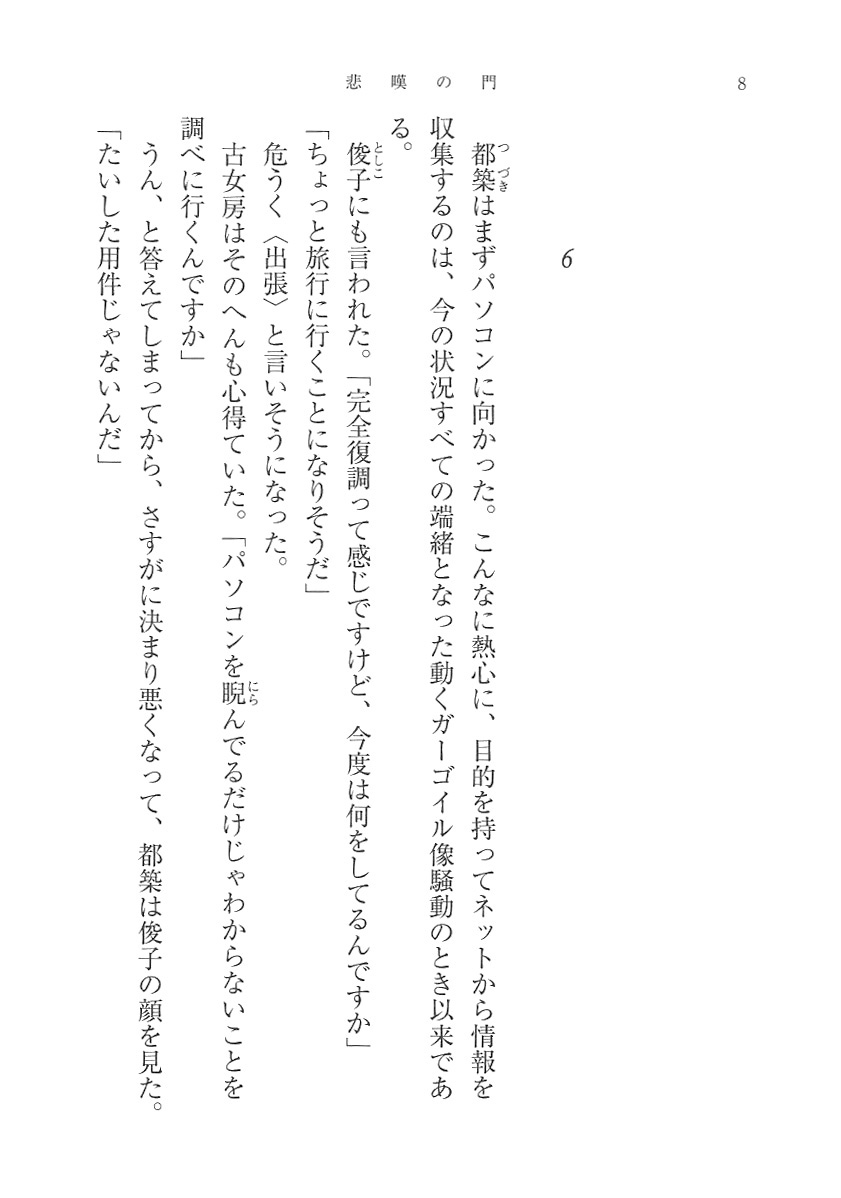 悲嘆の門
8
6
都築はまずパソコンに向かった。こんなに熱心に、目的を持ってネットから情報を
つづき
収集するのは、今の状況すべての端緒となった動くガーゴイル像騒動のとき以来であ
る。
俊子にも言われた。「完全復調って感じですけど、今度は何をしてるんですか」
としこ
「ちょっと旅行に行くことになりそうだ」
危うく〈出張〉と言いそうになった。
古女房はそのへんも心得ていた。「パソコンを睨んでるだけじゃわからないことを
にら
調べに行くんですか」
うん、と答えてしまってから、さすがに決まり悪くなって、都築は俊子の顔を見た。
「たいした用件じゃないんだ」